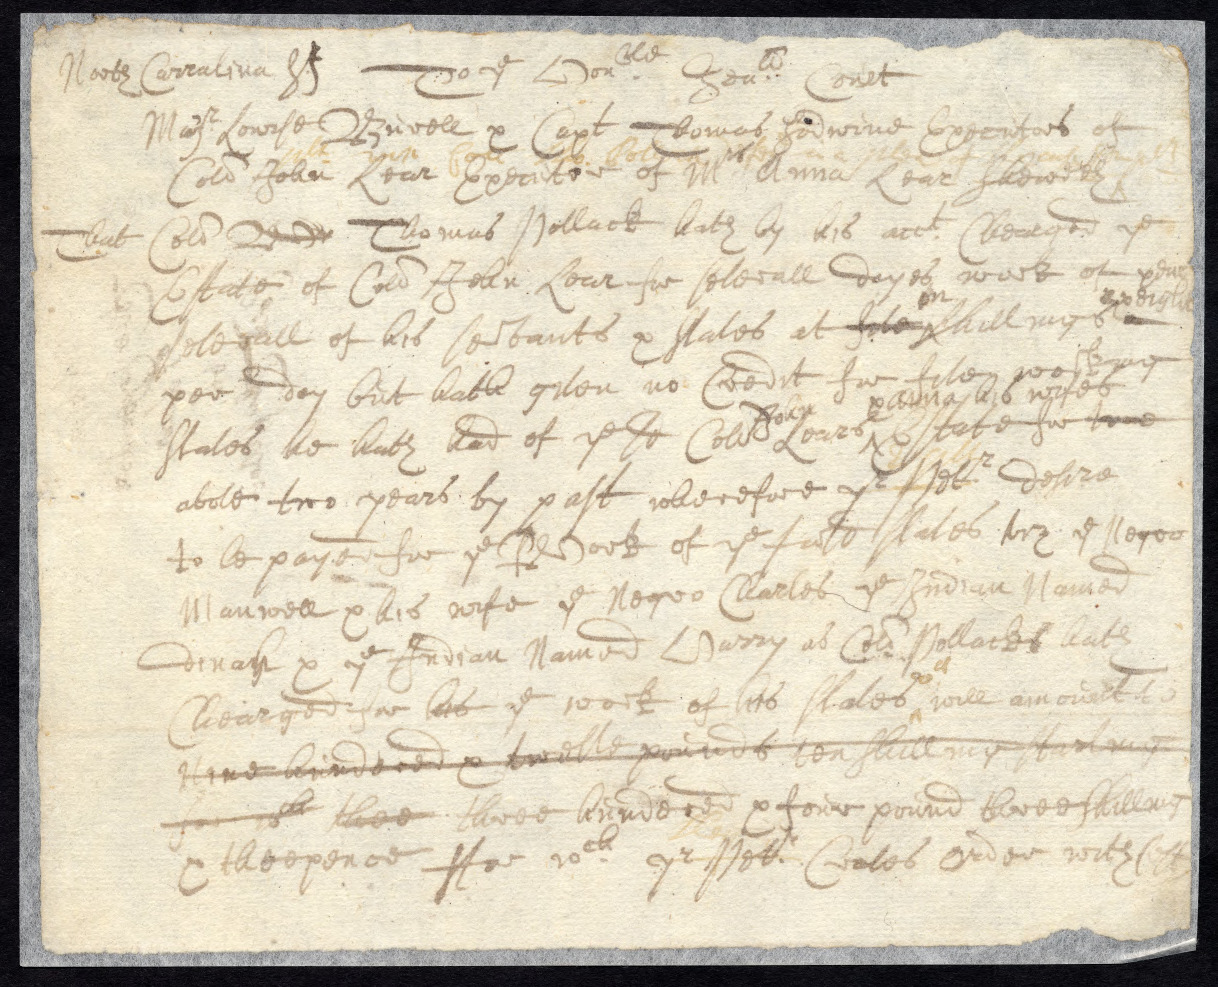 North Carralina SS To ye Honble Genll Court
Majr Lewise Burwell & Capt Thomas Godwine Executors of
Collo John Lear Executor of Mrs Anna Lear Sheweth
That Collo Thomas Pollack hath by his acct Chearged ye
Estate of Collo John Lear for severall dayes work of
severall of his servants & slaves at five shillings
per day but hath given no Credit for five working
John & anna his wifes
slaves he hath had of ye sd Collo Lears Estate for two
above two years by past wherefore yr Petr desire
to be payed for ye Work of ye said slaves viz ye Negro
Manwell & his wife ye Negro Charles ye Indian Named
dinah & ye Indian Named Harry as Coll Pollacks hath
Chearged for his ye work of his slaves will amount to
Nine hundered & twelve pounds ten shilling starling
for wch thee three hundered & foure pound three shilling
& theepence ffor wch yr Petr Craves order with Cost